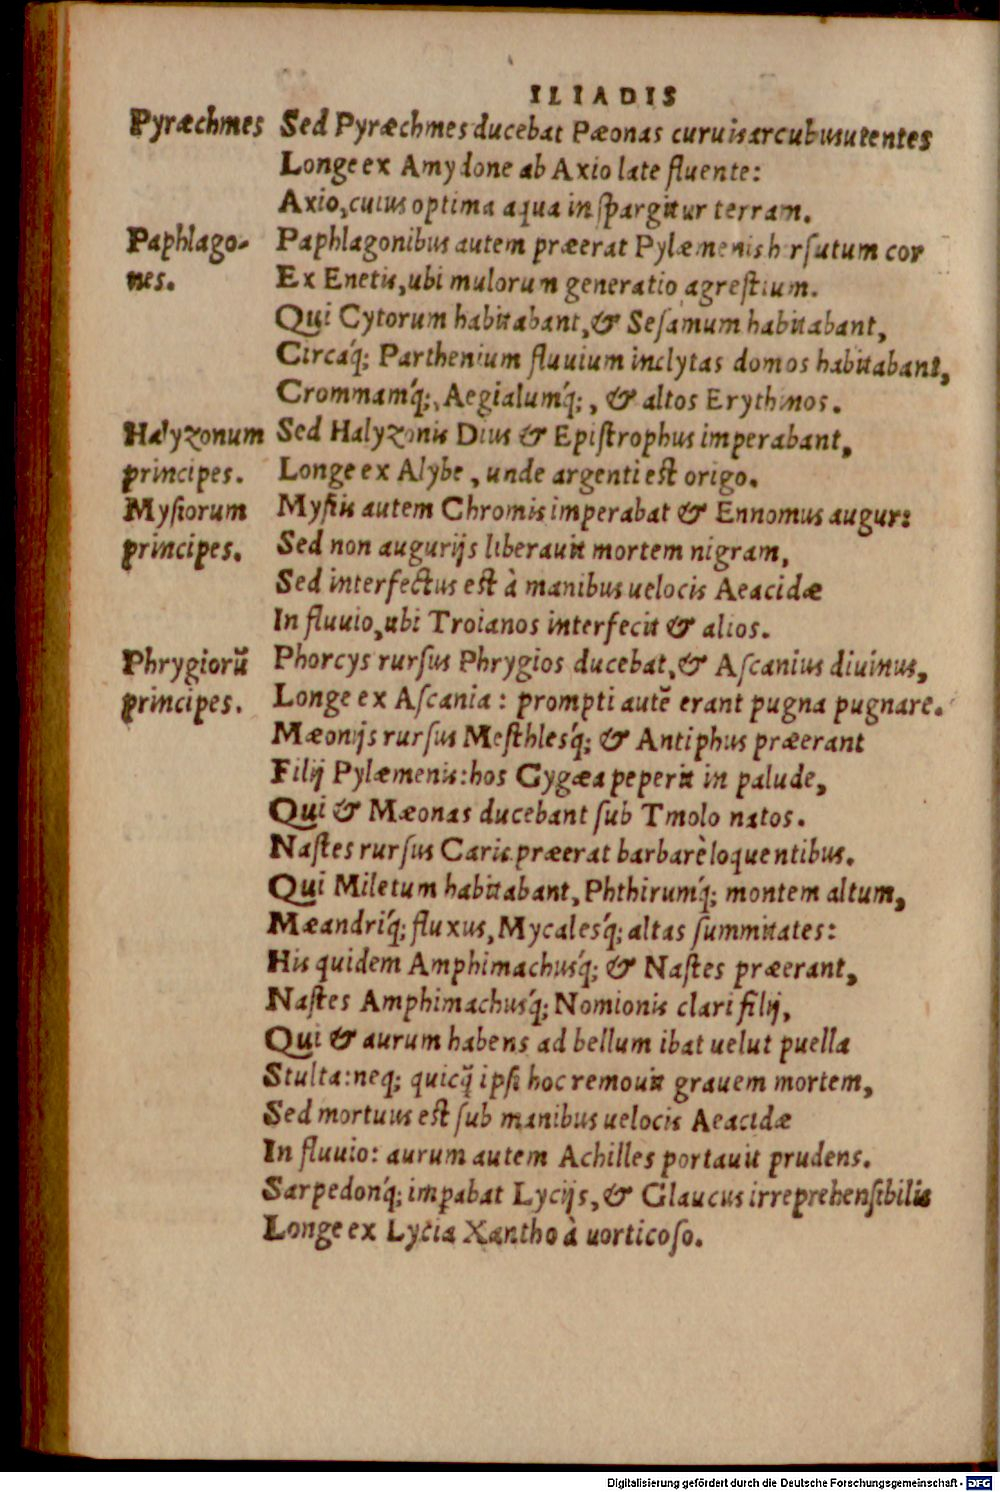 ILIADIS
Pyræchmes Sed Pyræchmes ducebat Pæonas curuis arcubus utentes
Longe ex Amydone ab Axio late fluente:
Axio, cuius optima aqua inspargitur terram.
Paphlago- Paphlagonibus autem præerat Pylæmenis hirsutum cor
nes. Ex Enetis, ubi mulorum generatio agrestium.
Qui Cytorum habitabant, & Sesamum habitabant,
Circáq; Parthenium fluuium inclytas domos habitabant,
Crommamq́;, Aegialumq́;, & altos Erythinos.
Halyzonum Sed Halyzonis Dius & Epistrophus imperabant,
principes. Longe ex Alybe, unde argenti est origo.
Mysiorum Mysiis autem Chromis imperabat & Ennomus augur:
principes. Sed non augurijs liberauit mortem nigram,
Sed interfectus est à manibus uelocis Aeacidæ
In fluuio, ubi Troianos interfecit & alios.
Phrygiorũ Phorcys rursus Phrygios ducebat, & Ascanius diuinus,
principes. Longe ex Ascania: prompti autẽ erant pugna pugnare.
Mæonijs rursus Mesthlesq́; & Antiphus præerant
Filij Pylæmenis: hos Gygæa peperit in palude,
Qui & Mæonas ducebant sub Tmolo natos.
Nastes rursus Caris præerat barbarè loquentibus.
Qui Miletum habitabant, Phthirumq́; montem altum,
Mæandriq́; fluxus, Mycalesq́; altas summitates:
His quidem Amphimachusq́; & Nastes præerant,
Nastes Amphimachusq́; Nomionis clari filij,
Qui & aurum habens ad bellum ibat uelut puella
Stulta: neq; quicq̃ ipsi hoc remouit grauem mortem,
Sed mortuus est sub manibus uelocis Aeacidæ
In fluuio: aurum autem Achilles portauit prudens.
Sarpedonq́; imꝑabat Lycijs, & Glaucus irreprehensibilis
Longe ex Lycia Xantho à uorticoso.
Digitalisierung gefördert durch die Deutsche Forschungsgemeinschaft - DFG